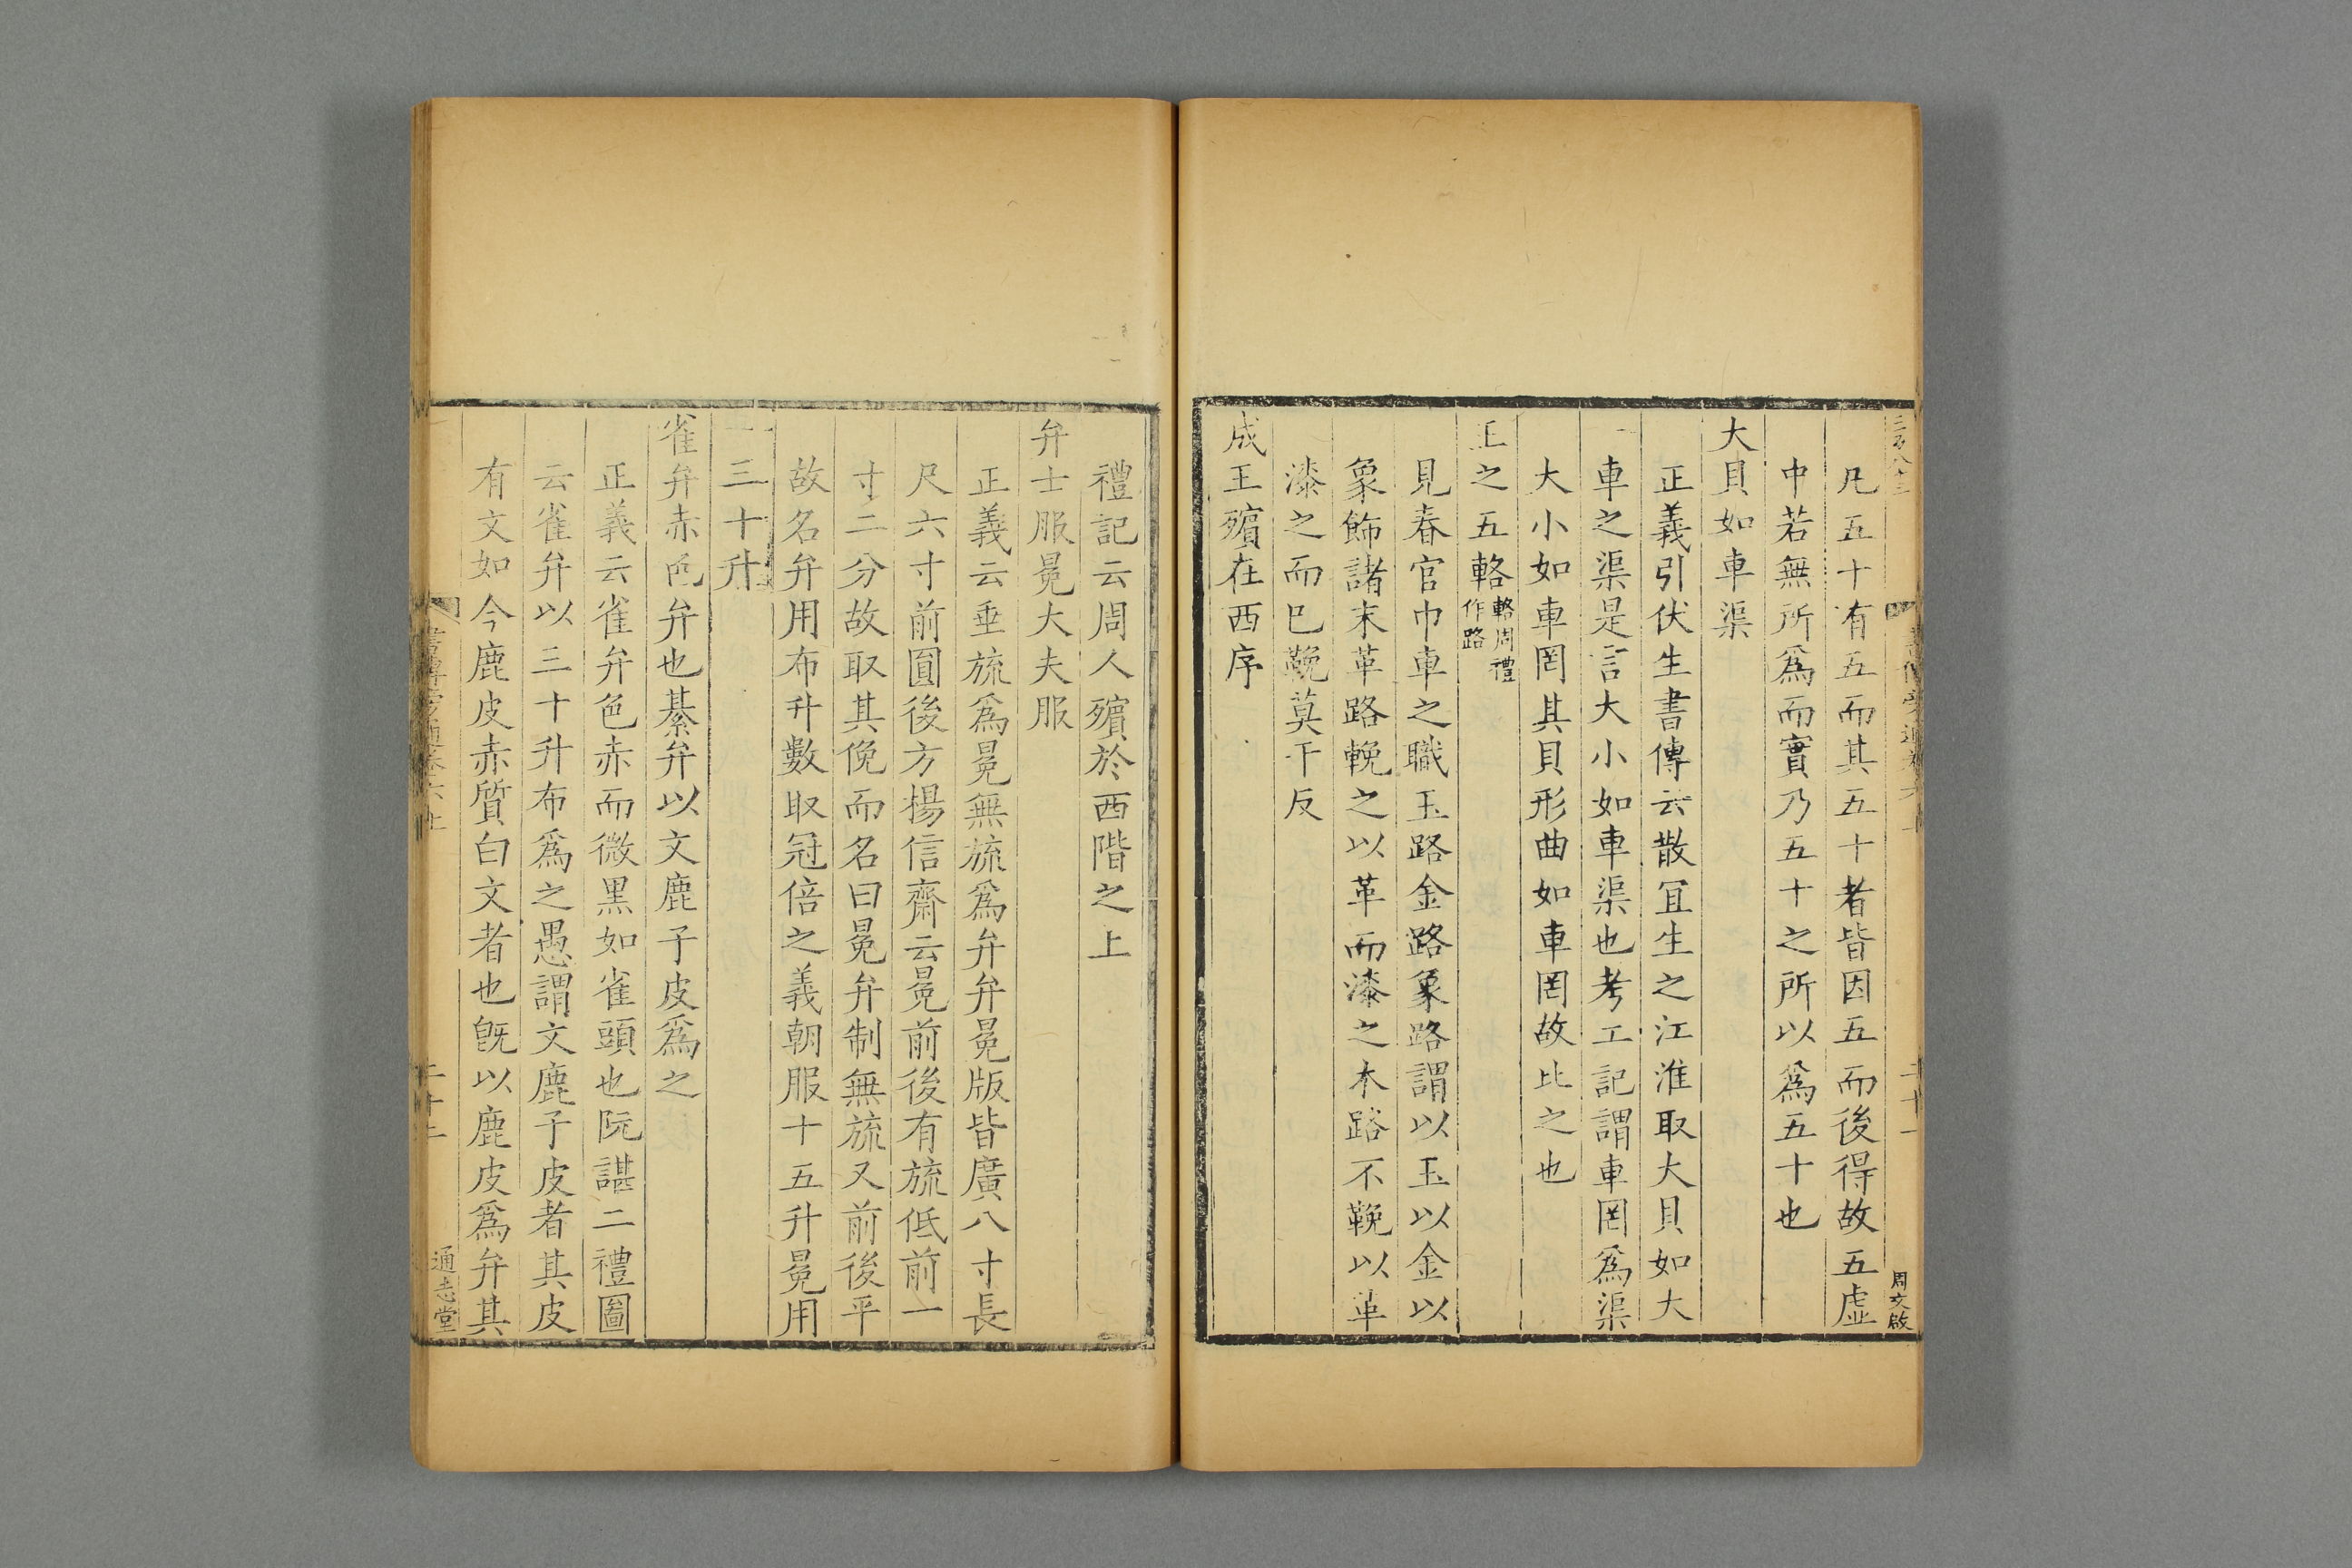 凡五十有五而其五十者皆因五而後得故五虛
中若無所爲而實乃五十之所以爲五十也
大貝如車渠
正義引伏生書傳云散冝生之江淮取大貝如大
車之渠是言大小如車渠也考工記謂車罔爲渠
大小如車罔其貝形曲如車罔故比之也
王之五輅輅周禮作路
見春官巾車之職玉路金路象路謂以玉以金以
象飾諸末革路輓之以革而漆之木路不鞔以革
漆之而巳鞔莫干反
成王殯在西序
周文啟
禮記云周人殯於西階之上
弁士服冕大夫服
正義云垂旒爲冕無旒爲弁弁冕版皆廣八寸長
尺六寸前圓後方楊信齋云冕前後有旒低前一
寸二分故取其俛而名曰冕弁制無旒又前後平
故名弁用布升數取冠倍之義朝服十五升冕用
三十升
雀弁赤色弁也綦弁以文鹿子皮爲之
正義云雀弁色赤而微黑如雀頭也阮諶二禮圖
云雀弁以三十升布爲之愚謂文鹿子皮者其皮
有文如今鹿皮赤質白文者也旣以鹿皮爲弁其
通志堂